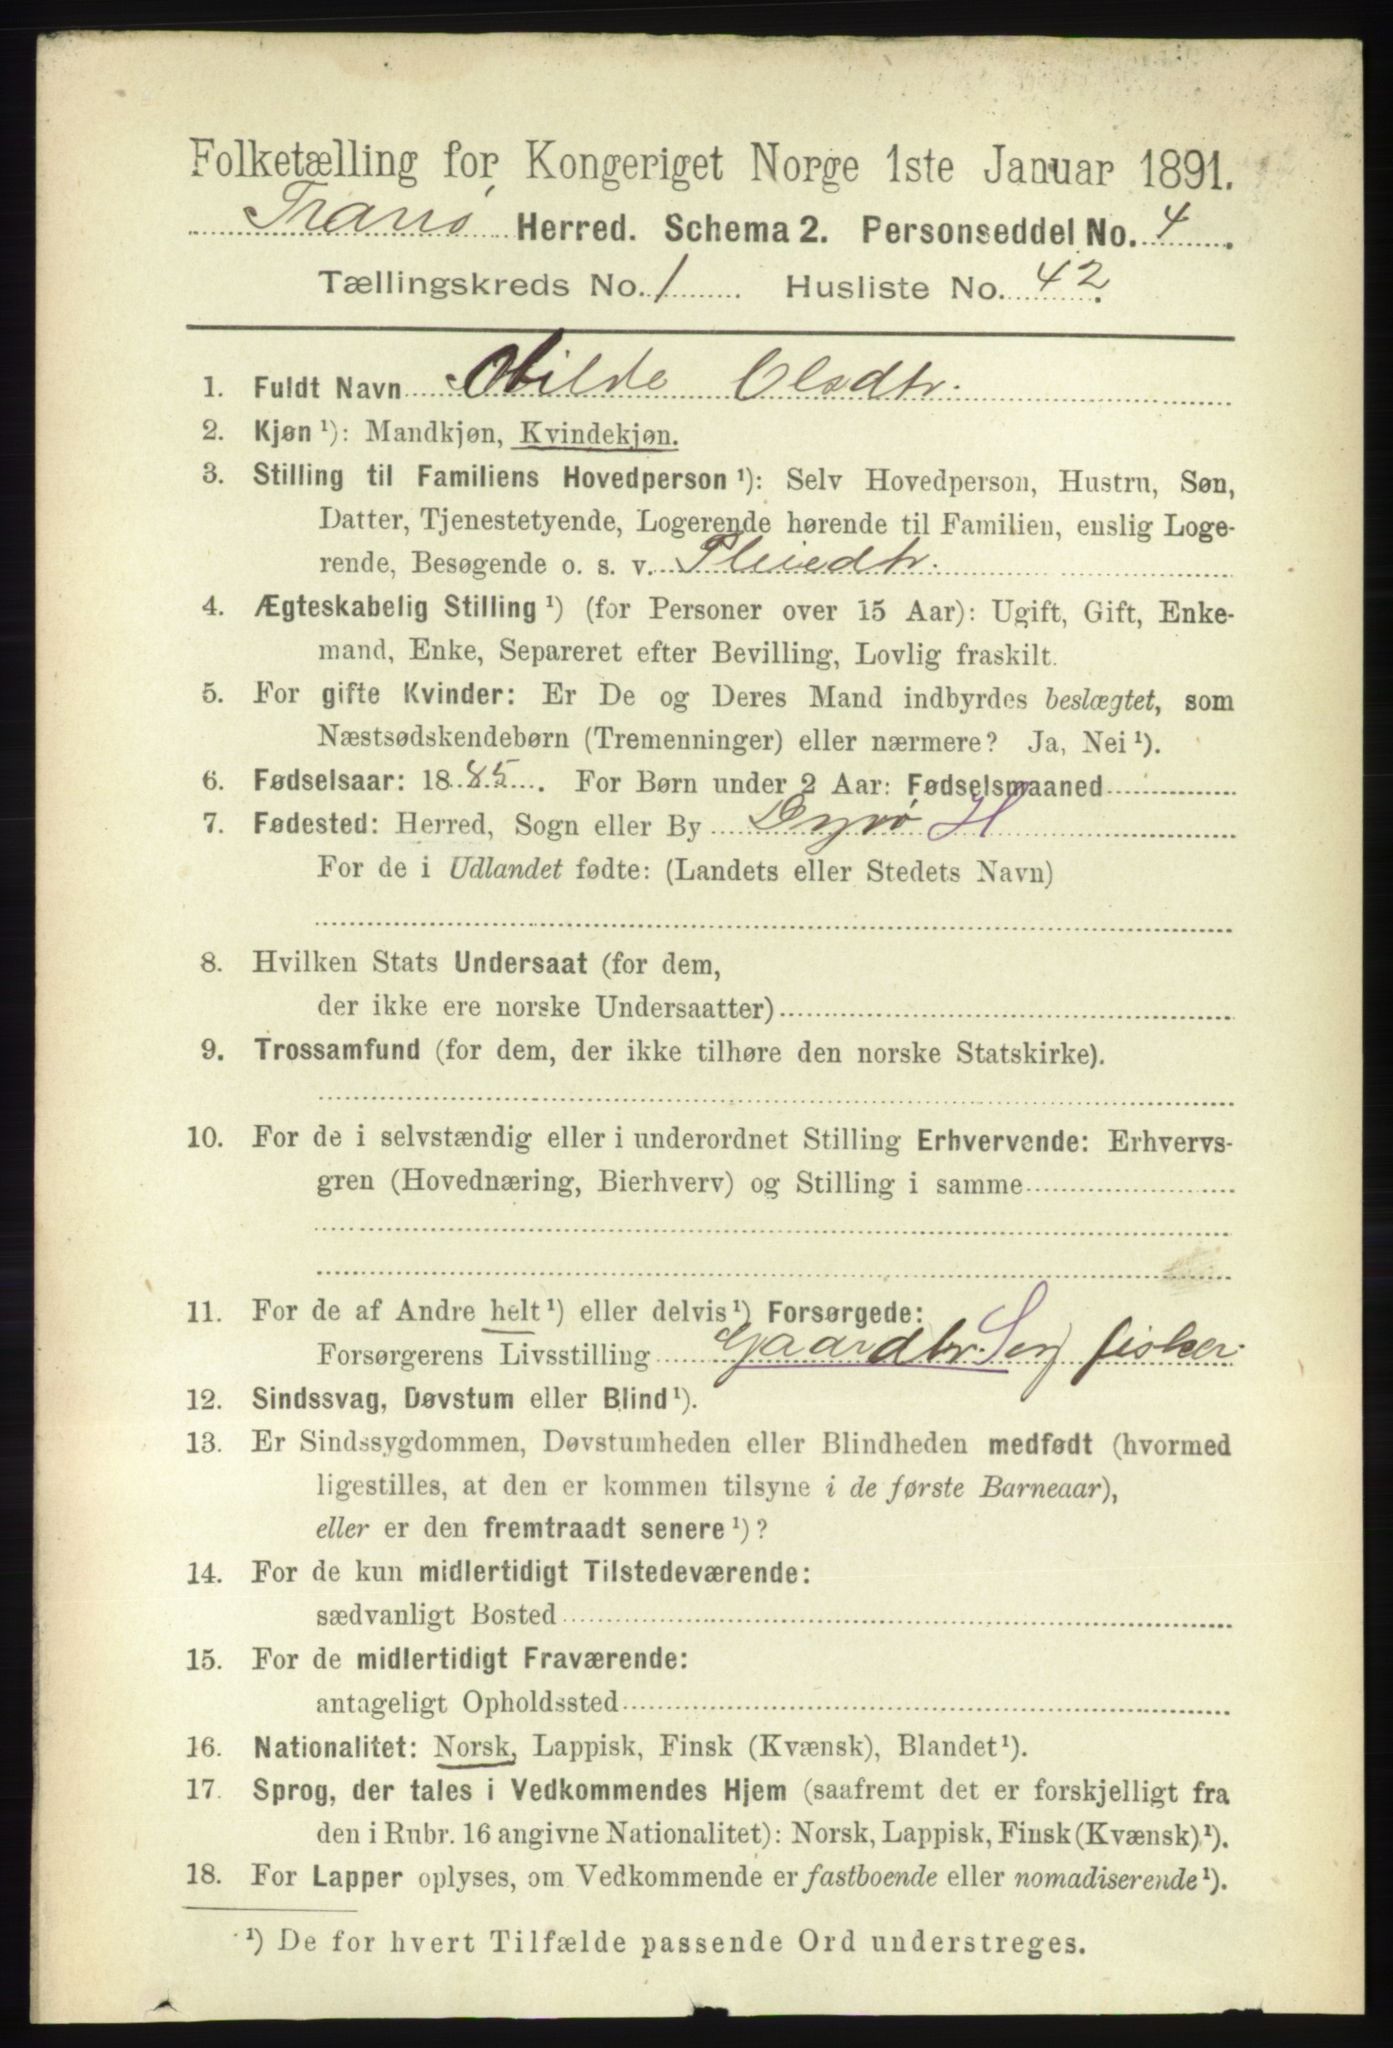 Folketælling for Kongeriget Norge 1ste Januar 1891.
Tranø Herred. Schema 2. Personseddel No. 4.
Tællingskreds No. 1 Husliste No. 42.
1. Fuldt Navn Olsdtr.
2. Kjøn ¹): Mandkjøn, Kvindekjøn.
3. Stilling til Familiens Hovedperson ¹): Selv Hovedperson, Hustru, Søn,
Datter, Tjenestetyende, Logerende hørende til Familien, enslig Loge-
rende, Besøgende o. s. v. Pleiedtr.
4. Ægteskabelig Stilling ¹) (for Personer over 15 Aar): Ugift, Gift, Enke-
mand, Enke, Separeret efter Bevilling, Lovlig fraskilt.
5. For gifte Kvinder: Er De og Deres Mand indbyrdes beslægtet, som
Næstsødskendebørn (Tremenninger) eller nærmere? Ja, Nei ¹).
6. Fødselsaar: 1885. For Børn under 2 Aar: Fødselsmaaned
7. Fødested: Herred, Sogn eller By Dyrø H
For de i Udlandet fødte: (Landets eller Stedets Navn)
8. Hvilken Stats Undersaat (for dem,
der ikke ere norske Undersaatter)
9. Trossamfund (for dem, der ikke tilhøre den norske Statskirke).
10. For de i selvstændig eller i underordnet Stilling Erhvervende: Erhvervs-
gren (Hovednæring, Bierhverv) og Stilling i samme
11. For de af Andre helt ¹) eller delvis ¹) Forsørgede:
Forsørgerens Livsstilling Gaardbr. Sen fisker
12. Sindssvag, Døvstum eller Blind ¹).
13. Er Sindssygdommen, Døvstumheden eller Blindheden medfødt (hvormed
ligestilles, at den er kommen tilsyne i de første Barneaar),
eller er den fremtraadt senere ¹)?
14. For de kun midlertidigt Tilstedeværende:
sædvanligt Bosted
15. For de midlertidigt Fraværende:
antageligt Opholdssted
16. Nationalitet: Norsk, Lappisk, Finsk (Kvænsk), Blandet ¹).
17. Sprog, der tales i Vedkommendes Hjem (saafremt det er forskjelligt fra
den i Rubr. 16 angivne Nationalitet): Norsk, Lappisk, Finsk (Kvænsk) ¹).
18. For Lapper oplyses, om Vedkommende er fastboende eller nomadiserende ¹).
¹) De for hvert Tilfælde passende Ord understreges.